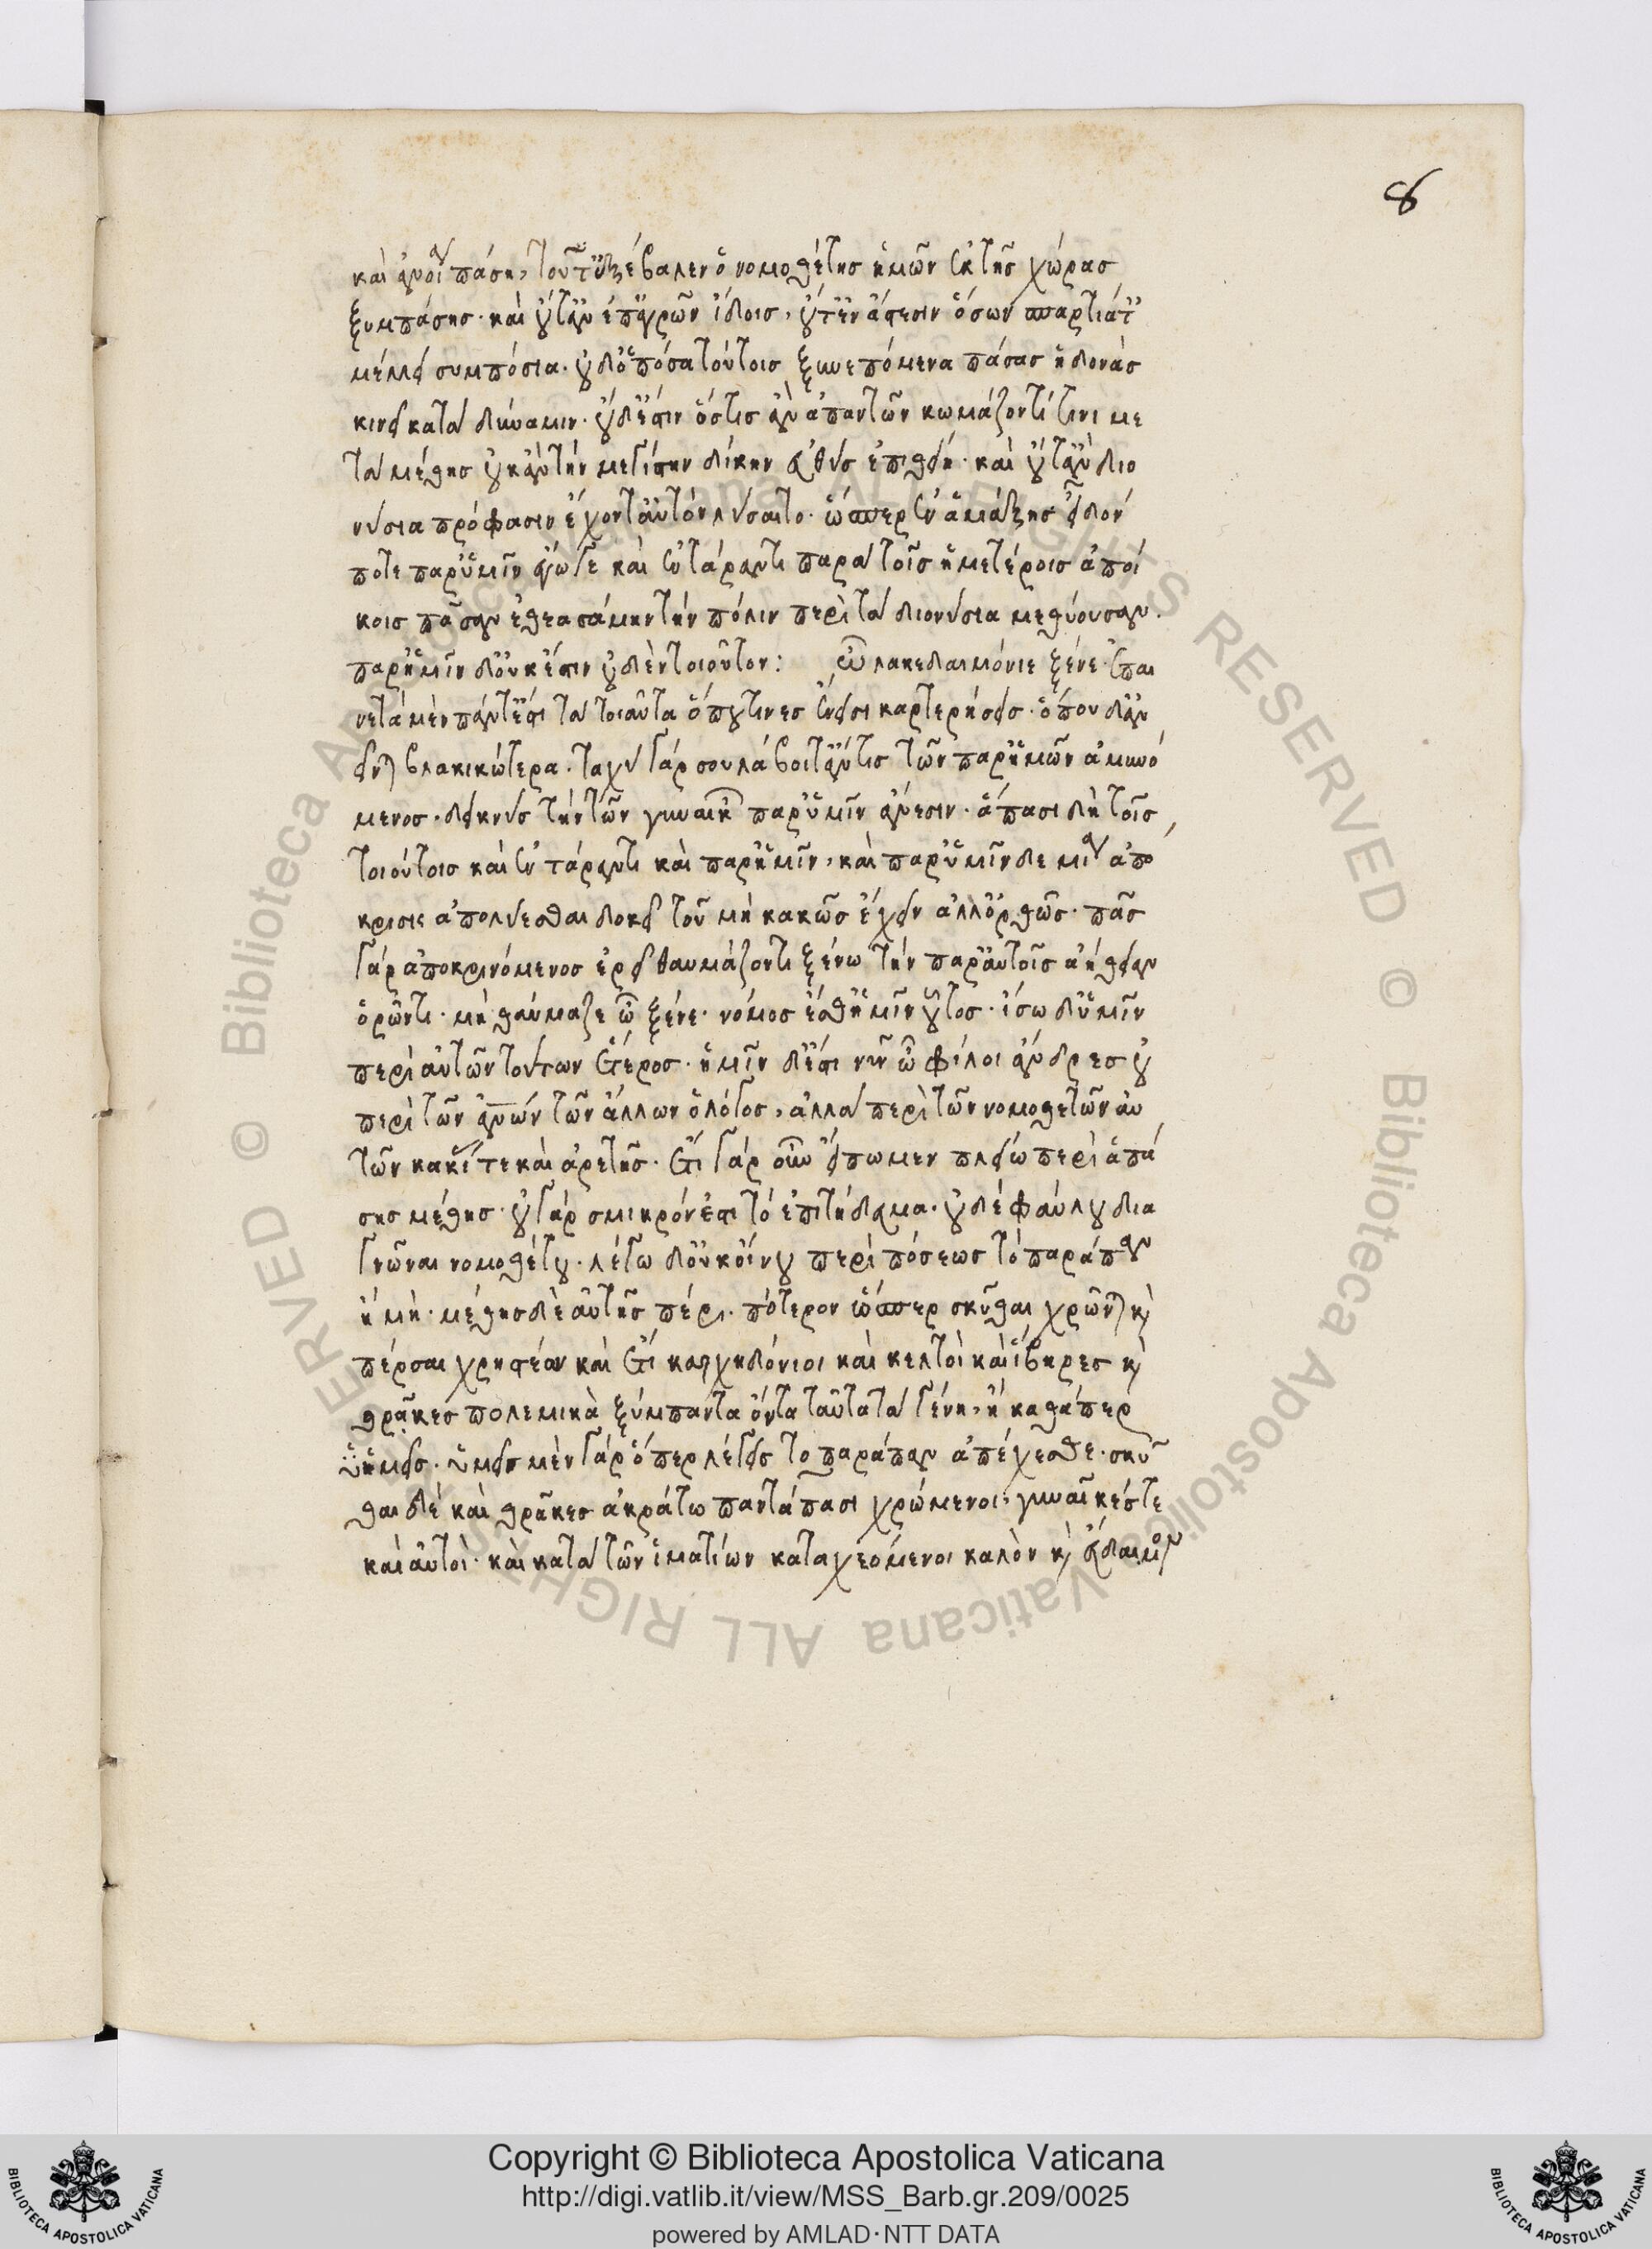 καὶ ἀνοίαι πάσηι, τοῦτ' ἐξέβαλεν ὁ νομοθέτης ἡμῶν ἐκ τῆς χώρας
ξυμπάσης· καὶ οὔτ' ἂν ἐπ' ἀγρῶν ἴδοις, οὔτ' ἐν ἄστεσιν ὅσων σπαρτιάτ
μέλει συμπόσια· οὐδ' ὁπόσα τούτοις ξυνεπόμενα πάσας ἡδονὰς
κινεῖ κατὰ δύναμιν· οὐδ' ἔστιν ὅστις ἂν ἀπαντῶν κωμάζοντί τινι με
τὰ μέθης οὐκ ἂν τὴν μεγίστην δίκην εὐθὺς ἐπιθείη· καὶ οὔτ' ἂν διο
νύσια πρόφασιν ἔχοντ' αὐτὸν λύσαιτο· ὥσπερ ἐν ἁμάξης εἶδόν
ποτε παρ' ὑμῖν ἐγώ γε καὶ ἐν τάραντι παρὰ τοῖς ἡμετέροις ἀποί
κοις πᾶσαν ἐθεασάμην τὴν πόλιν περὶ τὰ διονύσια μεθύουσαν.
παρ' ἡμῖν δ' οὐκ ἔστιν οὐδὲν τοιοῦτον: ὦ λακεδαιμόνιε ξένε· ἐπαι
νετὰ μὲν πάντ' ἐστὶ τὰ τοιαῦτα ὅπου τινες ἔνεισι καρτερήσεις· ὅπου δ' ἂν
εῖνται βλακικώτερα. ταχὺ γάρ σου λάβοιτ' ἄν τις τῶν παρ' ἡμῶν ἀμυνό
μενος. δεικνὺς τὴν τῶν γυναικῶν παρ' ὑμῖν ἄνεσιν· ἅπασι δὴ τοῖς
τοιούτοις καὶ ἐν τάραντι καὶ παρ' ἡμῖν, καὶ παρ' ὑμῖν δε μία ἀπό
κρισις ἀπολύεσθαι δοκεῖ τοῦ μὴ κακῶς ἔχειν ἀλλ' ὀρθῶς· πᾶς
γὰρ ἀποκρινόμενος ἐρεῖ θαυμάζοντι ξένω τὴν παρ' αὑτοῖς ἀήθειαν
ὁρῶντι· μὴ θαύμαζε ὦ ξένε· νόμος ἔσθ' ἡμῖν οὗτος· ἴσως δ' ὑμῖν
περὶ αὐτῶν τούτων ἕτερος· ἡμῖν δ' ἐστὶ νῦν ὦ φίλοι ἄνδρες οὐ
περὶ τῶν ἀνων τῶν ἄλλων ὁ λόγος, ἀλλὰ περὶ τῶν νομοθετῶν αὐ
τῶν κακίας τε καὶ ἀρετῆς· ἔτι γὰρ οὖν εἴπωμεν πλείω περὶ ἁπά
σης μέθης· οὐ γὰρ σμικρόν ἐστι τὸ ἐπιτήδευμα. οὐδὲ φαύλου δια
γνῶναι νομοθέτου· λέγω δ' οὐκ οἴνου περὶ πόσεως τὸ παράπαν
ἢ μή· μέθης δὲ αὐτῆς πέρι. πότερον ὥσπερ σκῦθαι χρῶνται κ
πέρσαι χρηστέον καὶ ἔτι καρχηδόνιοι καὶ κελτοὶ καὶ ἴβηρες κ
θρᾶκες πολεμικὰ ξύμπαντα ὄντα ταῦτα τὰ γένη, ἢ καθάπερ
ὑμεῖς. ὑμεῖς μὲν γὰρ ὅπερ λέγεις τὸ παράπαν ἀπέχεσθε. σκύ
θαι δὲ καὶ θρᾶκες ἀκράτω παντάπασι χρώμενοι, γυναῖκές τε
καὶ αὐτοὶ· καὶ κατὰ τῶν ἱματίων καταχεόμενοι καλὸν κ εὔδαιμον
8
Copyright © Biblioteca Apostolica Vaticana
http://digi.vatlib.it/view/MSS_Barb.gr.209/0025
powered by AMLAD·NTT DATA